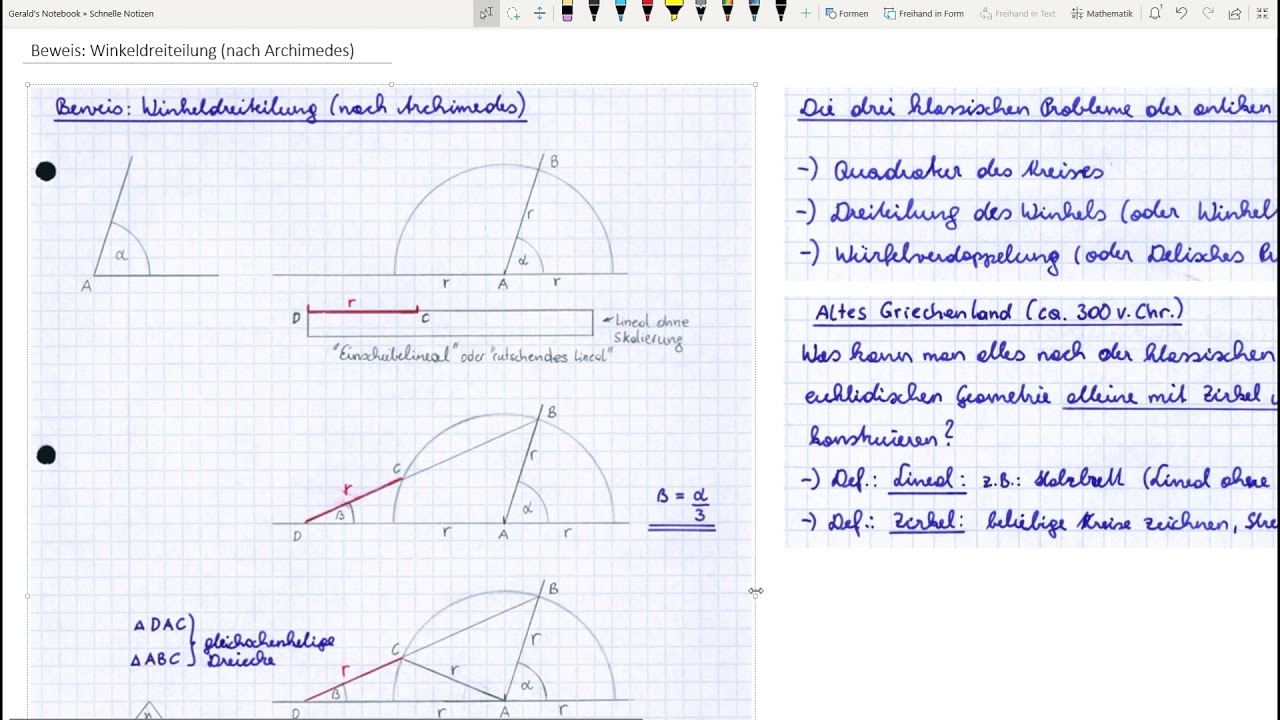 Gerald's Notebook » Schnelle Notizen
Formen
Freihand in Form
Freihand in Text
Mathematik
Beweis: Winkeldreiteilung (nach Archimedes)
Beweis: Winkeldreiteilung (nach Archimedes)
α
A
B
r
α
r A r
r
D C
Lineal ohne
Skalierung
"Einschiebelineal" oder "rutschendes Lineal"
B
C
r
r
β
α
D r A r
β = α/3
Δ DAC
Δ ABC
gleichschenkelige
Dreiecke
B
C
r
r
r
β
α
D r A r
Die drei klassischen Probleme der antiken
-) Quadratur des Kreises
-) Dreiteilung des Winkels (oder Winkel
-) Würfelverdoppelung (oder Delisches
Altes Griechenland (ca. 300 v. Chr.)
Was kann man alles nach der klassischen
euklidischen Geometrie alleine mit Zirkel
konstruieren?
-) Def.: Lineal: z.B.: Holzbrett (Lineal ohne
-) Def.: Zirkel: beliebige Kreise zeichnen,